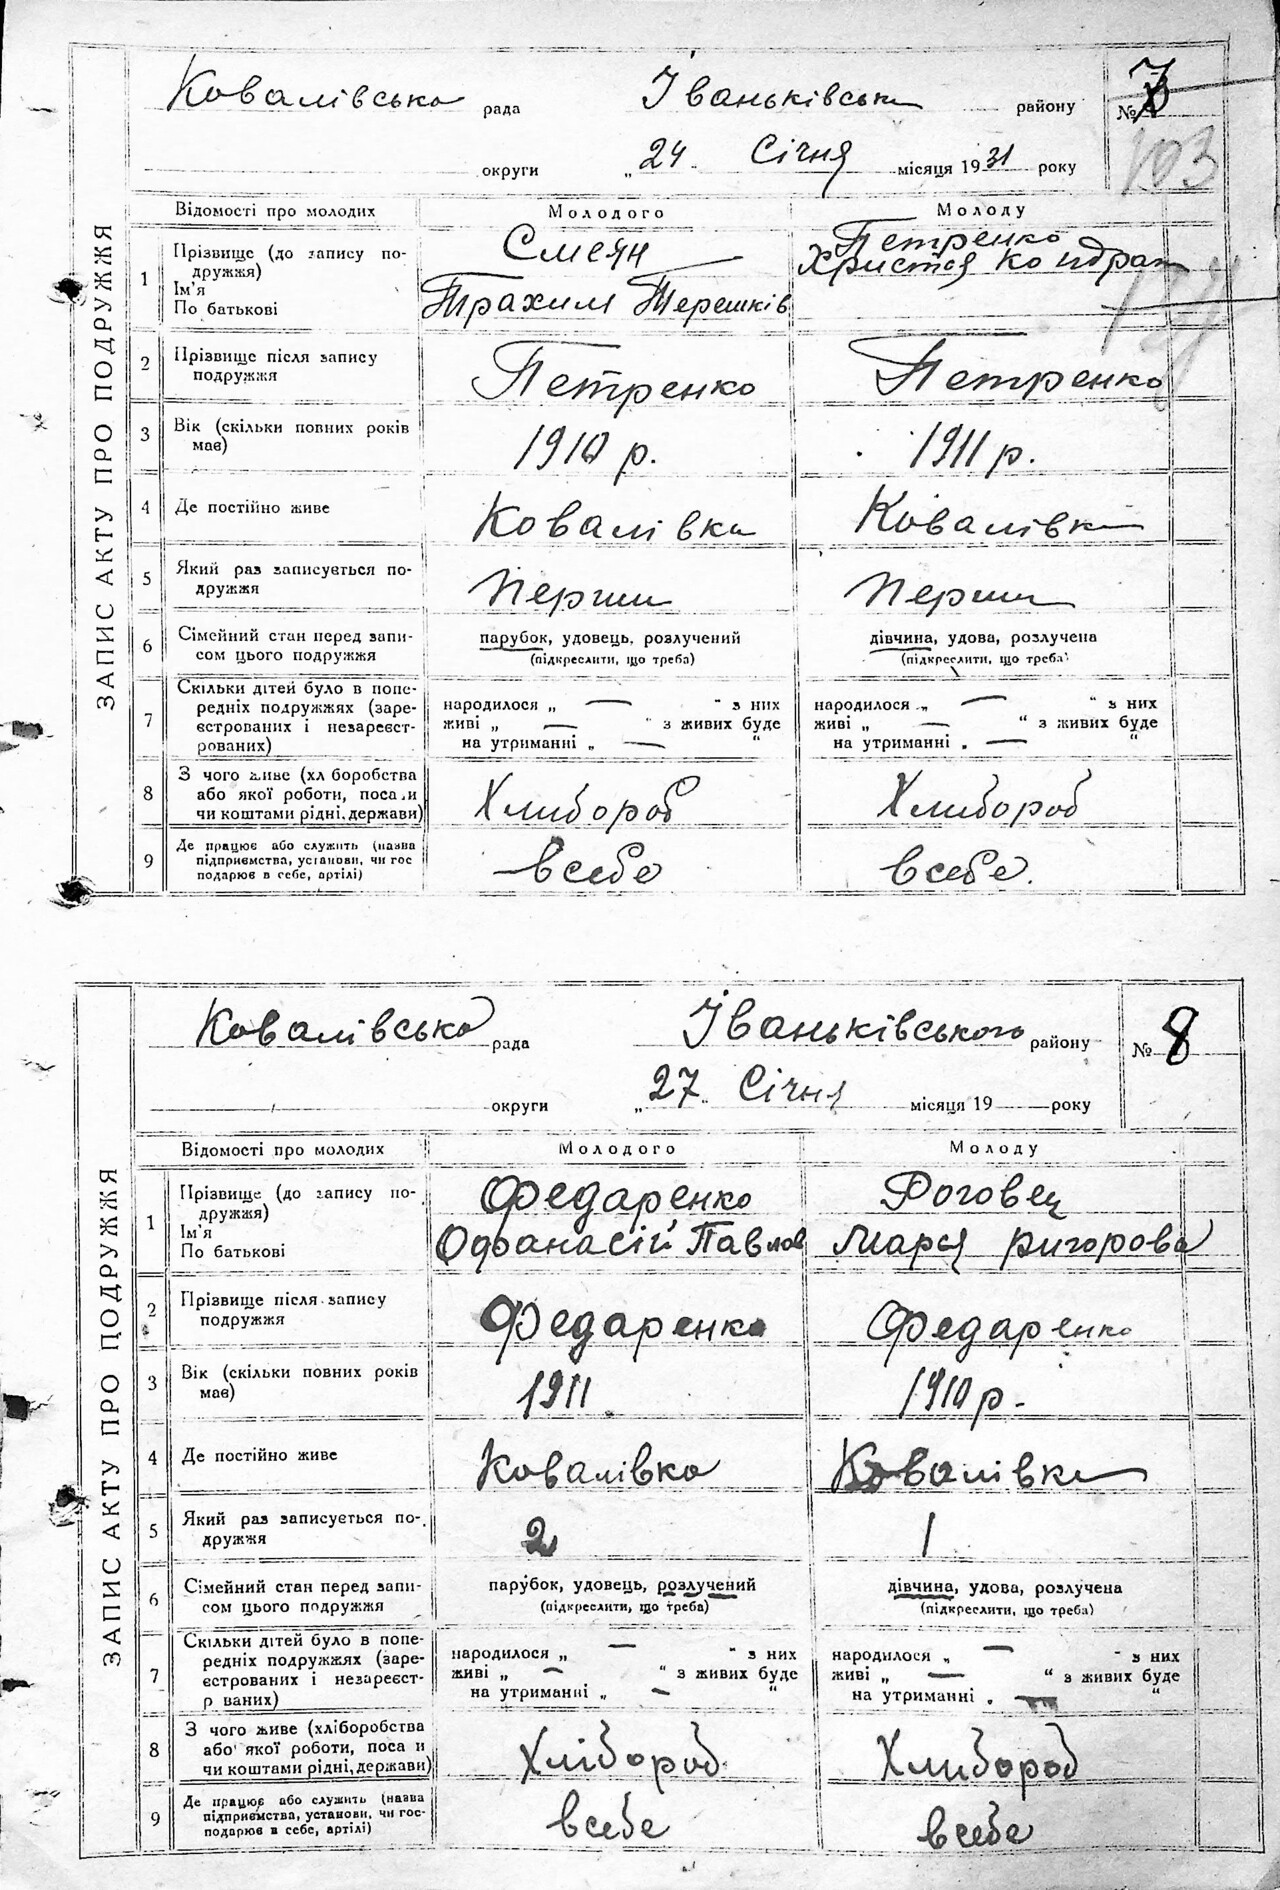 ЗАПИС АКТУ ПРО ПОДРУЖЖЯ
Ковалівська рада Іваньківськ району № 7
103
округи „24" Січня місяця 1931 року
Відомості про молодих Молодого Молоду
1 Прізвище (до запису подружжя) Ім'я По батькові
Смеян
Трахим Терешків
Петренко
Христя Кондрат
2 Прізвище після запису подружжя Петренко Петренко
3 Вік (скільки повних років має) 1910 р. 1911 р.
4 Де постійно живе Ковалівка Ковалівка
5 Який раз записується подружжя Перши Перши
6 Сімейний стан перед записом цього подружжя
парубок, удовець, розлучений (підкреслити, що треба)
дівчина, удова, розлучена (підкреслити, що треба)
7 Скільки дітей було в попередніх подружжях (зареєстрованих і незареєстрованих)
народилося „ — " з них
живі „ — " з живих буде
на утриманні „ — "
народилося „ — " з них
живі „ — " з живих буде
на утриманні „ — "
8 З чого живе (хл боробства або якої роботи, поса и чи коштами рідні, держави) Хлибороб Хлибороб
9 Де працює або служить (назва підприємства, установи, чи гос подарює в себе, артілі) всебе всебе.
ЗАПИС АКТУ ПРО ПОДРУЖЖЯ
Ковалівська рада Іваньківського району № 8
округи „27" Січня місяця 19 — року
Відомості про молодих Молодого Молоду
1 Прізвище (до запису подружжя) Ім'я По батькові
Федаренко
Офанасій Павлов
Роговец
Марія ригорова
2 Прізвище після запису подружжя Федаренко Федаренко
3 Вік (скільки повних років має) 1911 1910 р.
4 Де постійно живе Ковалівка Ковалівка
5 Який раз записується подружжя 2 1
6 Сімейний стан перед записом цього подружжя
парубок, удовець, розлучений (підкреслити, що треба)
дівчина, удова, розлучена (підкреслити, що треба)
7 Скільки дітей було в попередніх подружжях (зареєстрованих і незареєстр ваних)
народилося „ — " з них
живі „ — " з живих буде
на утриманні „ — "
народилося „ — " з них
живі „ — " з живих буде
на утриманні „ — "
8 З чого живе (хліборобства або якої роботи, поса и чи коштами рідні, держави) Хлібороб Хлибороб
9 Де працює або служить (назва підприємства, установи, чи господарює в себе, артілі) всебе всебе